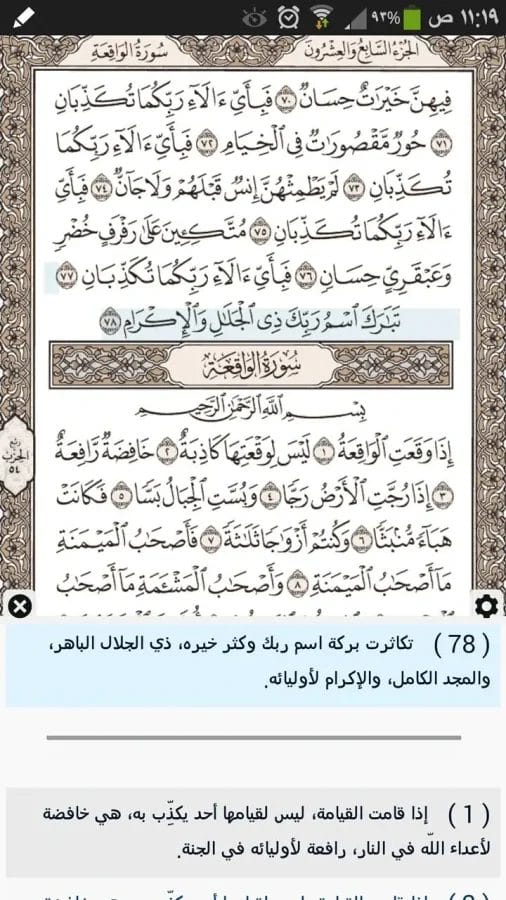 ١١:١٩ ص ٩٣%
الجزء السابع والعشرون
سورة الواقعة
فِيهِنَّ خَيْرَٰتٌ حِسَانٌ ٧٠ فَبِأَيِّ ءَالَآءِ رَبِّكُمَا تُكَذِّبَانِ
٧١ حُورٌ مَّقْصُورَٰتٌ فِي ٱلْخِيَامِ ٧٢ فَبِأَيِّ ءَالَآءِ رَبِّكُمَا
تُكَذِّبَانِ ٧٣ لَمْ يَطْمِثْهُنَّ إِنسٌ قَبْلَهُمْ وَلَا جَآنٌّ ٧٤ فَبِأَيِّ
ءَالَآءِ رَبِّكُمَا تُكَذِّبَانِ ٧٥ مُتَّكِـِٔينَ عَلَىٰ رَفْرَفٍ خُضْرٍ
وَعَبْقَرِيٍّ حِسَانٍ ٧٦ فَبِأَيِّ ءَالَآءِ رَبِّكُمَا تُكَذِّبَانِ ٧٧
تَبَٰرَكَ ٱسْمُ رَبِّكَ ذِي ٱلْجَلَٰلِ وَٱلْإِكْرَامِ ٧٨
سورة الواقعة
بِسْمِ ٱللَّهِ ٱلرَّحْمَٰنِ ٱلرَّحِيمِ
إِذَا وَقَعَتِ ٱلْوَاقِعَةُ ١ لَيْسَ لِوَقْعَتِهَا كَاذِبَةٌ ٢ خَافِضَةٌ رَّافِعَةٌ
٣ إِذَا رُجَّتِ ٱلْأَرْضُ رَجًّا ٤ وَبُسَّتِ ٱلْجِبَالُ بَسًّا ٥ فَكَانَتْ
هَبَآءً مُّنۢبَثًّا ٦ وَكُنتُمْ أَزْوَٰجًا ثَلَٰثَةً ٧ فَأَصْحَٰبُ ٱلْمَيْمَنَةِ
مَآ أَصْحَٰبُ ٱلْمَيْمَنَةِ ٨ وَأَصْحَٰبُ ٱلْمَشْـَٔمَةِ مَآ أَصْحَٰبُ
ربع
الحزب
٥٤
(78) تكاثرت بركة اسم ربك وكثر خيره، ذي الجلال الباهر،
والمجد الكامل، والإكرام لأوليائه.
(1) إذا قامت القيامة، ليس لقيامها أحد يكذِّب به، هي خافضة
لأعداء اللّه في النار، رافعة لأوليائه في الجنة.